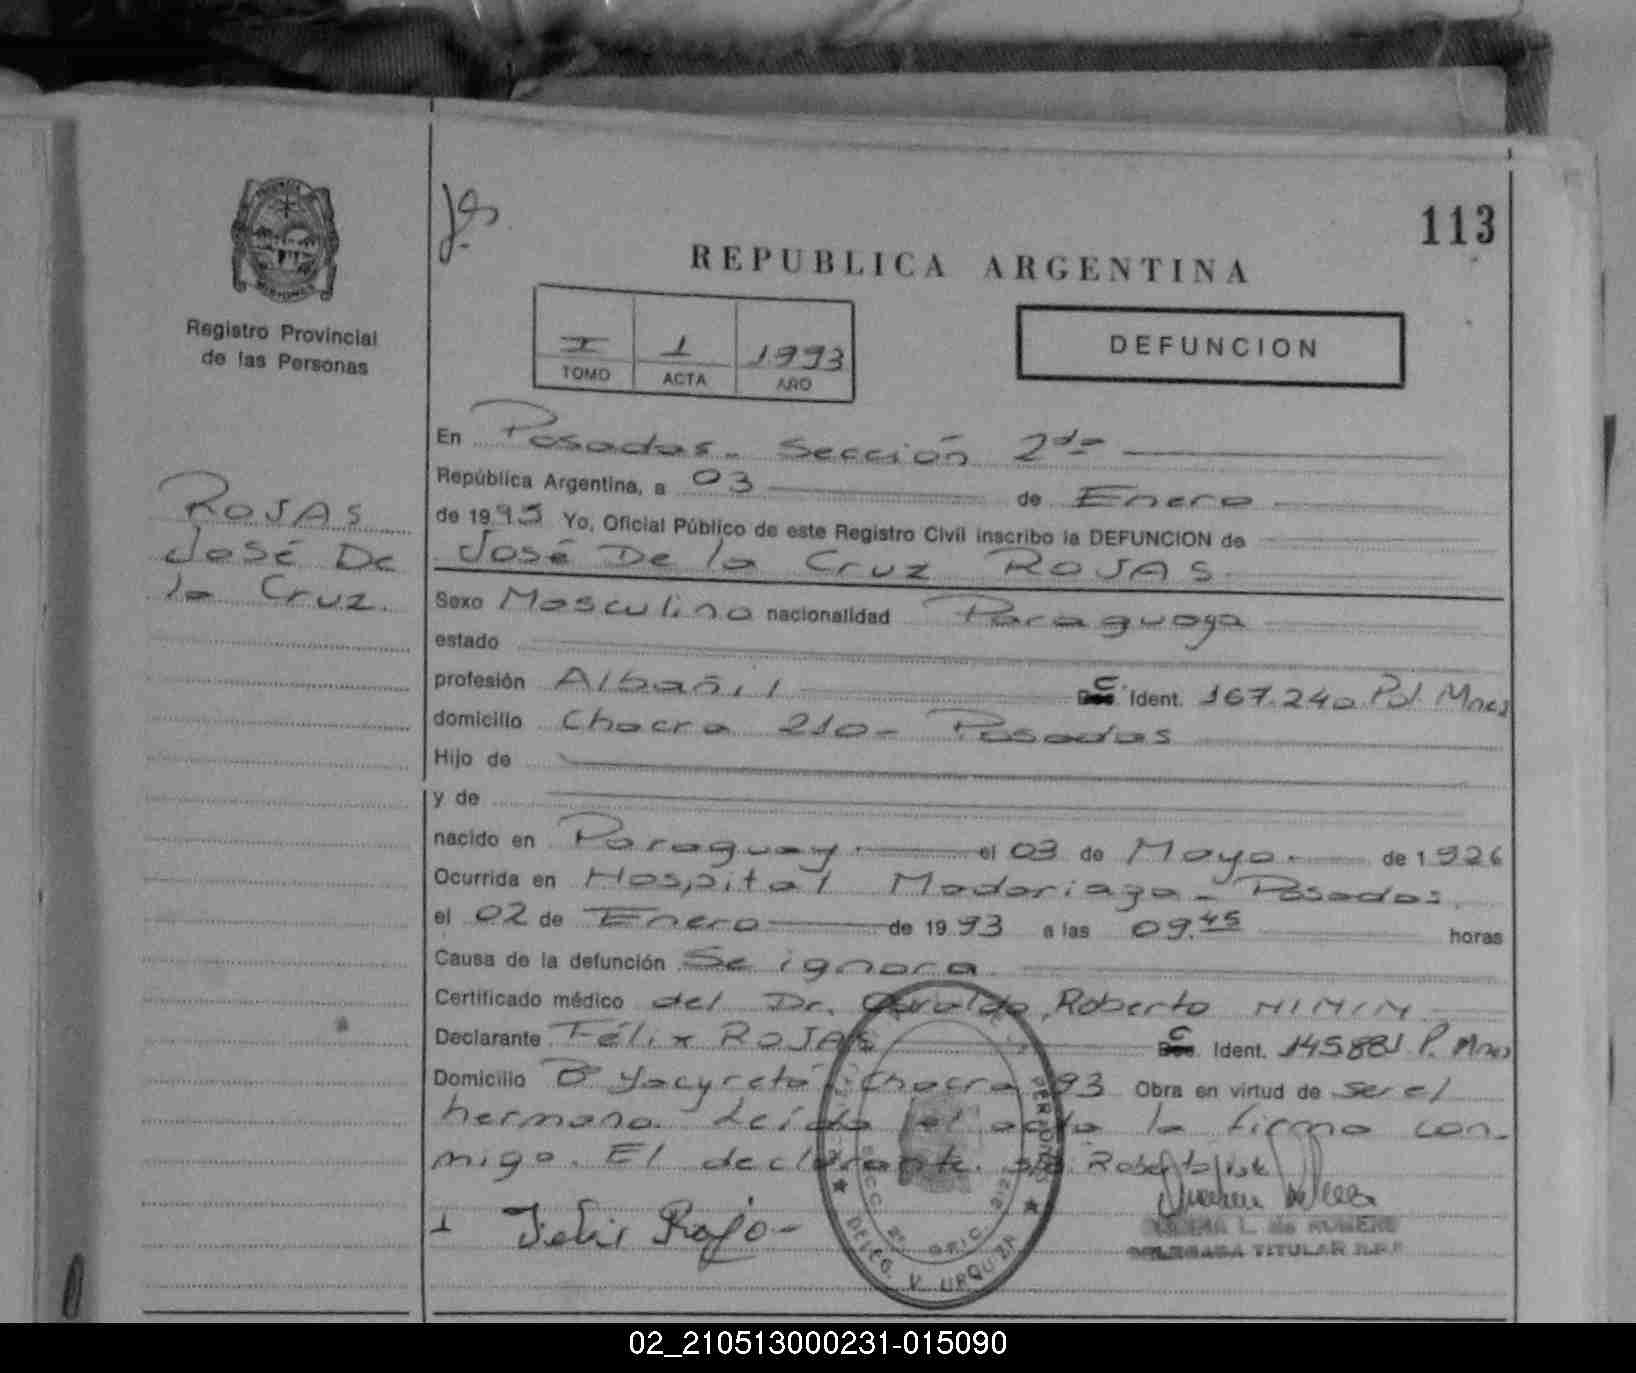 113
REPUBLICA ARGENTINA
Registro Provincial
de las Personas
I 1 1993
TOMO ACTA AÑO
DEFUNCION
ROJAS
José De
la Cruz.
En Posadas - Sección 2da
República Argentina, a 03 de Enero
de 1993 Yo, Oficial Público de este Registro Civil inscribo la DEFUNCION de
José De la Cruz ROJAS
Sexo Masculino nacionalidad Paraguaya
estado
profesión Albañil C. Ident. 167.240 Pol. Mnes
domicilio Chacra 210 - Posadas
Hijo de
y de
nacido en Paraguay el 03 de Mayo de 1926
Ocurrida en Hospital Madariaga - Posadas.
el 02 de Enero de 1993 a las 09.45 horas
Causa de la defunción Se ignora
Certificado médico del Dr. Osvaldo Roberto
Declarante Félix ROJAS C. Ident. 145881 P. Mnes
Domicilio Bº Yacyretá - Chacra 93 Obra en virtud de ser el
hermano. Leída el acta la firma con-
migo. El declarante. s/b Roberto
Felix Rojo-
DELEGADA TITULAR R.P.P
SECC. 2ª OFIC. 212
DELEG. V. URQUIZA
02_210513000231-015090